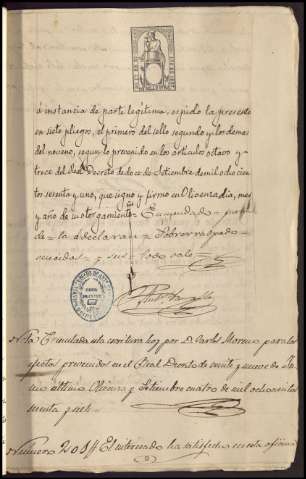 á instancia de parte legítima, espido la presente
en siete pliegos, el primero del sello segundo y los demas
del noveno, segun lo prevenido en los artículos octavo y
trece del Real Decreto de doce de Setiembre de mil ochocien
tos sesenta y uno, que signo y firmo en Olivenza, dia, mes
y año de su otorgamiento = Enmendado =
= la = declaran = Sobrerraspado =
= y = sus = todo vale =
Nota Presentada esta escritura hoy por D. Carlos Moreno para los
efectos prevenidos en el Real Decreto de veinte y nueve de
último Olivenza y Setiembre cuatro de mil ochocientos
sesenta y
Numero 208 // El interesado ha satisfecho en esta oficina